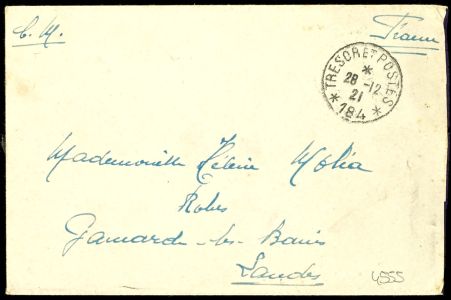 F. M. France
* TRESOR ET POSTES *
*
28 -12
21
184
Mademoiselle Hélène Molia
Robes
Gamarde-les-Bains
Landes
4555